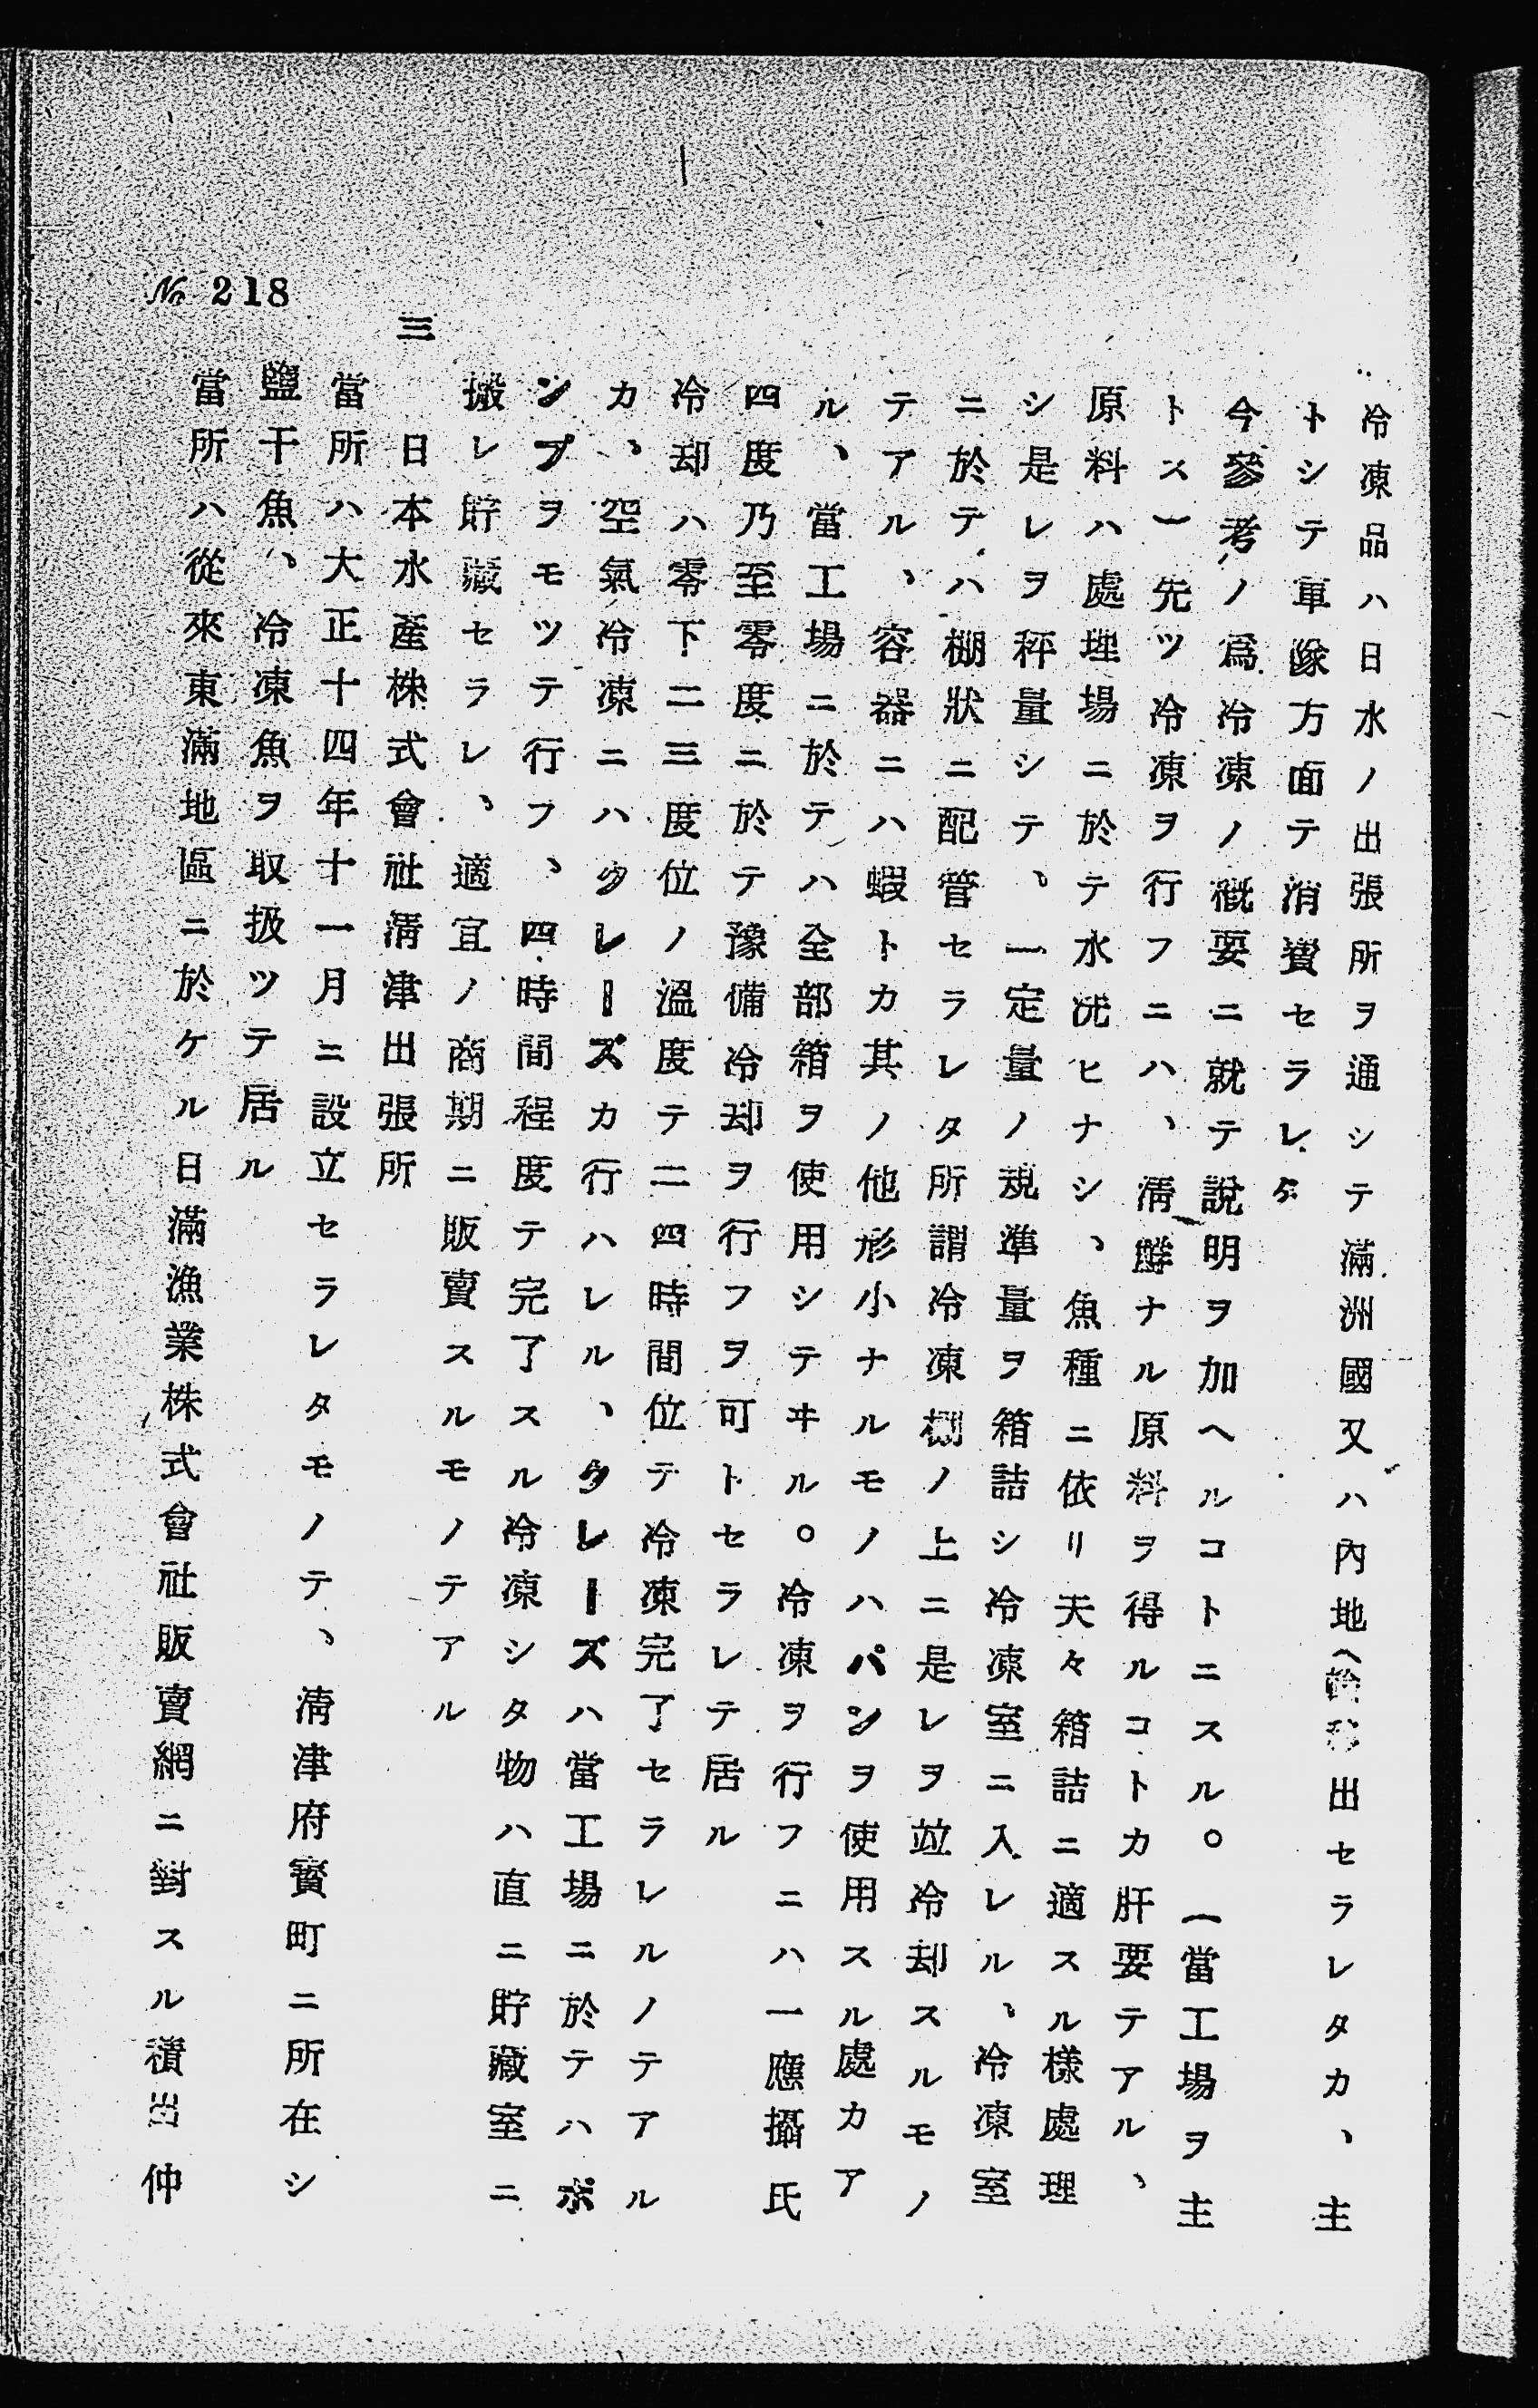 冷凍品ハ日水ノ出張所ヲ通シテ滿洲國又ハ內地ヘ輸移出セラレタカ、主
トシテ軍隊方面テ消費セラレタ
今參考ノ爲冷凍ノ槪要ニ就テ說明ヲ加ヘルコトニスル。（當工場ヲ主
トス）先ツ冷凍ヲ行フニハ、淸鮮ナル原料ヲ得ルコトカ肝要テアル、
原料ハ處理場ニ於テ水洗ヒナシ、魚種ニ依リ夭々箱詰ニ適スル樣處理
シ是レヲ秤量シテ、一定量ノ規準量ヲ箱詰シ冷凍室ニ入レル、冷凍室
ニ於テハ棚狀ニ配管セラレタ所謂冷凍棚ノ上ニ是レヲ竝冷却スルモノ
テアル、容器ニハ蝦トカ其ノ他形小ナルモノハパンヲ使用スル處カア
ル、當工場ニ於テハ全部箱ヲ使用シテヰル。冷凍ヲ行フニハ一應攝氏
四度乃至零度ニ於テ豫備冷却ヲ行フヲ可トセラレテ居ル
冷却ハ零下二三度位ノ溫度テ二四時間位テ冷凍完了セラレルノテアル
カ、空氣冷凍ニハグレーズカ行ハレル、グレーズハ當工場ニ於テハポ
ンプヲモツテ行フ、四時間程度テ完了スル冷凍シタ物ハ直ニ貯藏室ニ
搬レ貯藏セラレ、適宜ノ商期ニ販賣スルモノテアル
三　日本水產株式會社淸津出張所
當所ハ大正十四年十一月ニ設立セラレタモノテ、淸津府寳町ニ所在シ
鹽干魚、冷凍魚ヲ取扱ツテ居ル
當所ハ從來東滿地區ニ於ケル日滿漁業株式會社販賣網ニ對スル積出仲
№ 218